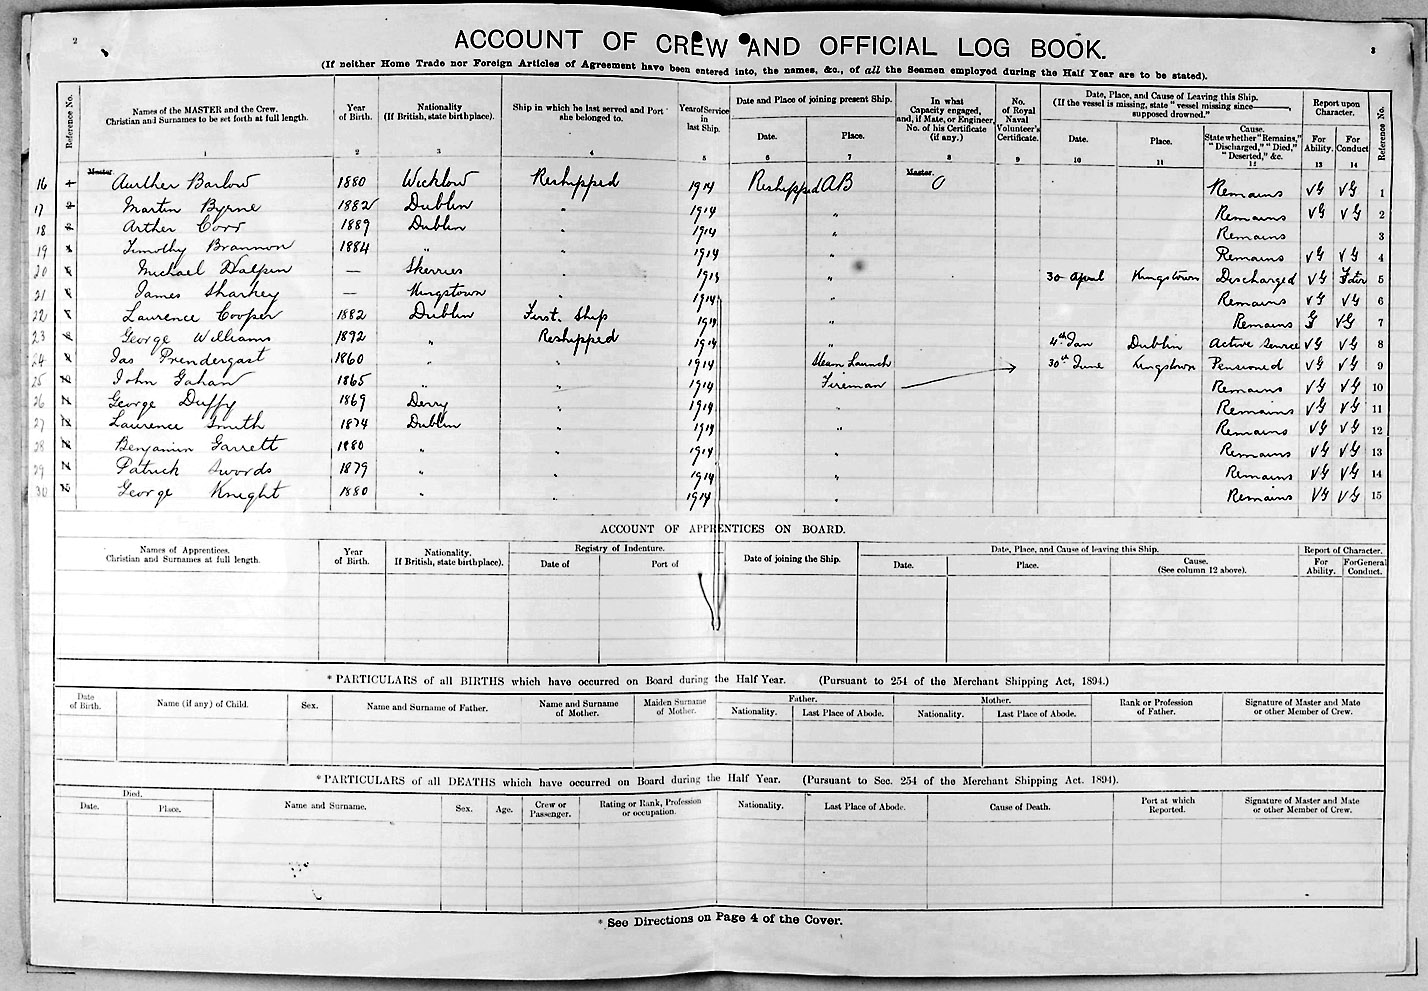 2
3
ACCOUNT OF CREW AND OFFICIAL LOG BOOK.
(If neither Home Trade nor Foreign Articles of Agreement have been entered into, the names, &c., of all the Seamen employed during the Half Year are to be stated).
Reference No. | Names of the MASTER and the Crew. Christian and Surnames to be set forth at full length. | Year of Birth. | Nationality (If British, state birthplace). | Ship in which he last served and Port she belonged to. | Year of Service in last Ship. | Date and Place of joining present Ship. Date. Place. | In what Capacity engaged, and, if Mate, or Engineer, No. of his Certificate (if any.) | No. of Royal Naval Volunteer's Certificate. | Date, Place, and Cause of Leaving this Ship. (If the vessel is missing, state "vessel missing since ———, supposed drowned." Date. Place. Cause. State whether "Remains," "Discharged," "Died," "Deserted," &c. | Report upon Character. For Ability. For Conduct | Reference No.
1 2 3 4 5 6 7 8 9 10 11 12 13 14
16 Master Aurther Barlow 1880 Wicklow Reshipped 1914 Reshipped AB Master. O Remains VG VG 1
17 Martin Byrne 1882 Dublin " 1914 " Remains VG VG 2
18 Arther Corr 1889 Dublin " 1914 " Remains 3
19 Timothy Brannon 1884 " " 1914 " Remains VG VG 4
20 Michael Halpin — Skerries " 1913 " 30 April Kingstown Discharged VG Fair 5
21 James Sharkey — Kingstown " 1914 " Remains VG VG 6
22 Laurence Cooper 1882 Dublin First Ship 1914 " Remains G VG 7
23 George Williams 1892 " Reshipped 1914 " 4th Jan Dublin Active Service VG VG 8
24 Jas Prendergast 1860 " " 1914 Steam Launch 30th June Kingstown Pensioned VG VG 9
25 John Gahan 1865 " " 1914 Fireman Remains VG VG 10
26 George Duffy 1869 Derry " 1914 Remains VG VG 11
27 Laurence Smith 1874 Dublin " 1914 " Remains VG VG 12
28 Benjamin Garrett 1880 " " 1914 Remains VG VG 13
29 Patrick Swords 1879 " " 1914 " Remains VG VG 14
30 George Knight 1880 " " 1914 " Remains VG VG 15
ACCOUNT OF APPRENTICES ON BOARD.
Names of Apprentices. Christian and Surnames at full length. | Year of Birth. | Nationality. If British, state birthplace). | Registry of Indenture. Date of Port of | Date of joining the Ship. | Date, Place, and Cause of leaving this Ship. Date. Place. Cause. (See column 12 above). | Report of Character. For Ability. For General Conduct.
* PARTICULARS of all BIRTHS which have occurred on Board during the Half Year. (Pursuant to 254 of the Merchant Shipping Act, 1894.)
Date of Birth. | Name (if any) of Child. | Sex. | Name and Surname of Father. | Name and Surname of Mother. | Maiden Surname of Mother. | Father. Nationality. Last Place of Abode. | Mother. Nationality. Last Place of Abode. | Rank or Profession of Father. | Signature of Master and Mate or other Member of Crew.
* PARTICULARS of all DEATHS which have occurred on Board during the Half Year. (Pursuant to Sec. 254 of the Merchant Shipping Act. 1894).
Died. Date. Place. | Name and Surname. | Sex. | Age. | Crew or Passenger. | Rating or Rank, Profession or occupation. | Nationality. | Last Place of Abode. | Cause of Death. | Port at which Reported. | Signature of Master and Mate or other Member of Crew.
* See Directions on Page 4 of the Cover.